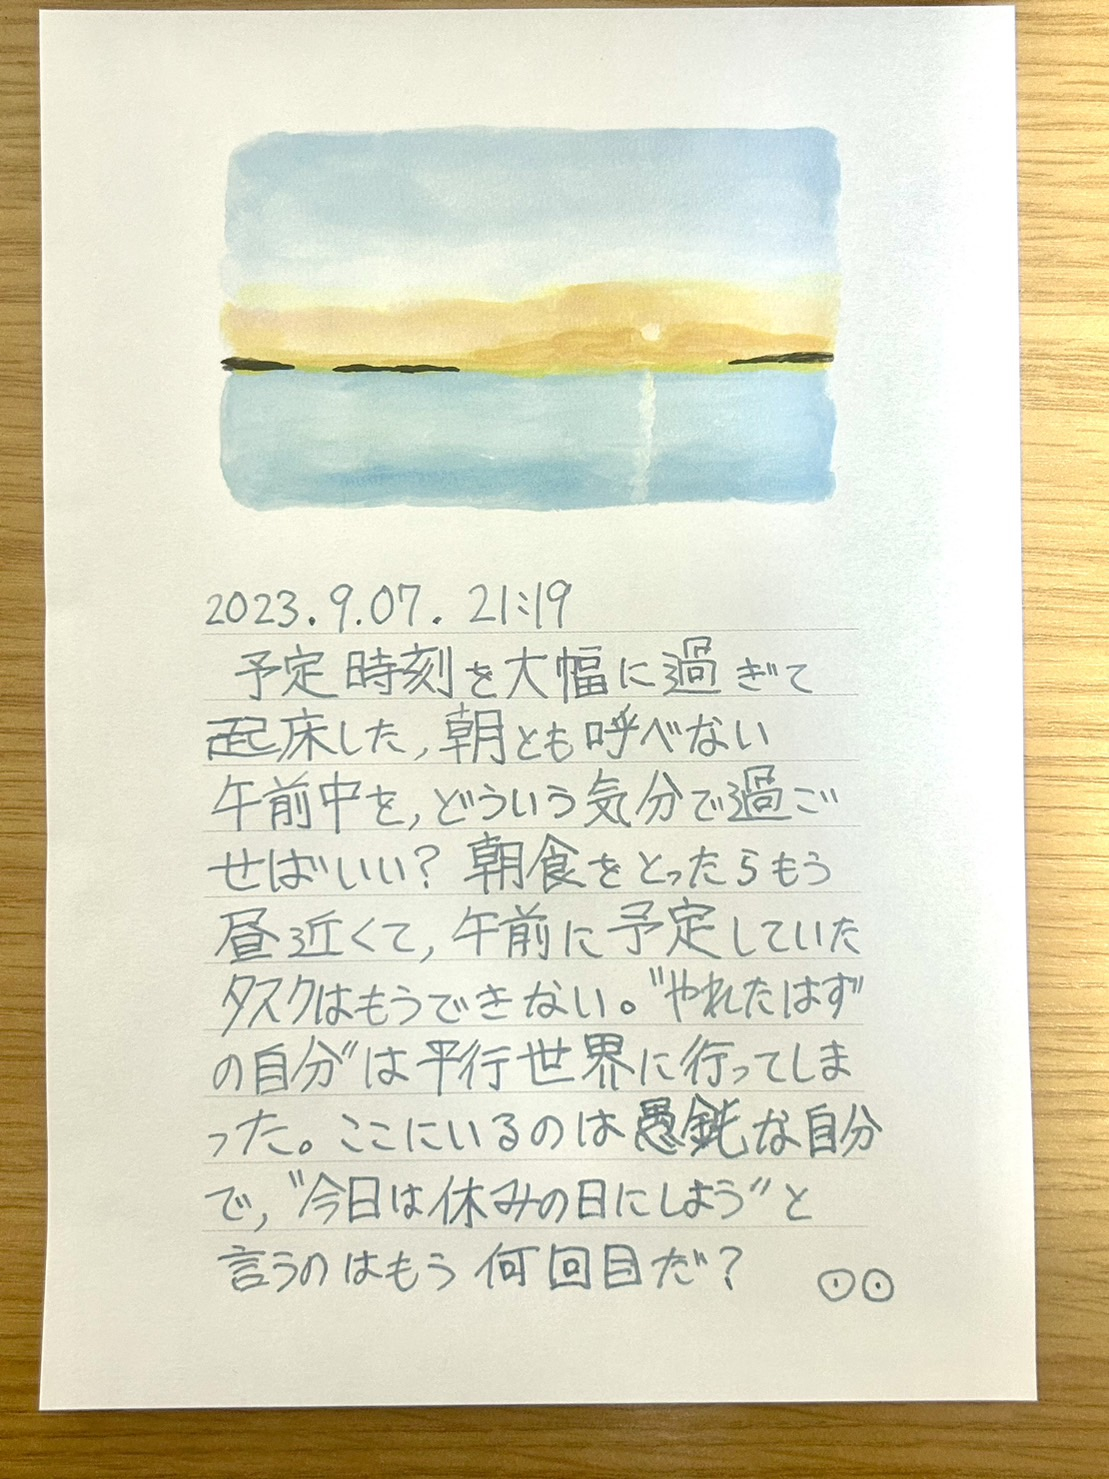 2023.9.07. 21:19
予定時刻を大幅に過ぎて
起床した,朝とも呼べない
午前中を,どういう気分で過ご
せばいい?朝食をとったらもう
昼近くて,午前に予定していた
タスクはもうできない。"やれたはず
の自分"は平行世界に行ってしま
った。ここにいるのは愚鈍な自分
で,"今日は休みの日にしよう"と
言うのはもう何回目だ?